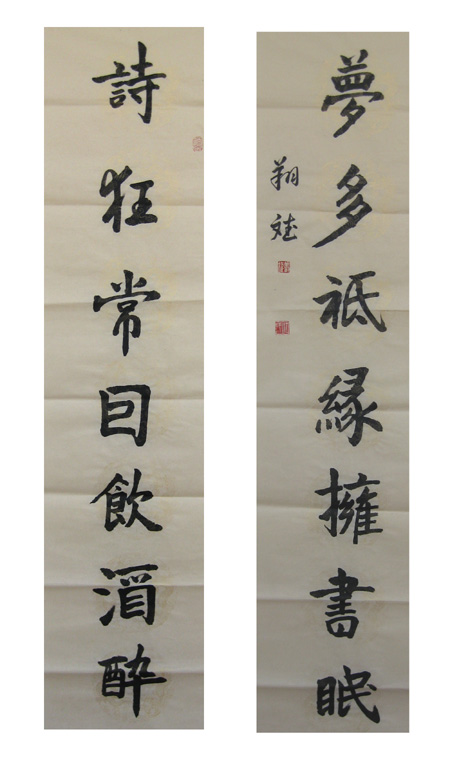 詩狂常囙飲酒醉
夢多祗緣擁書眠
翔斌